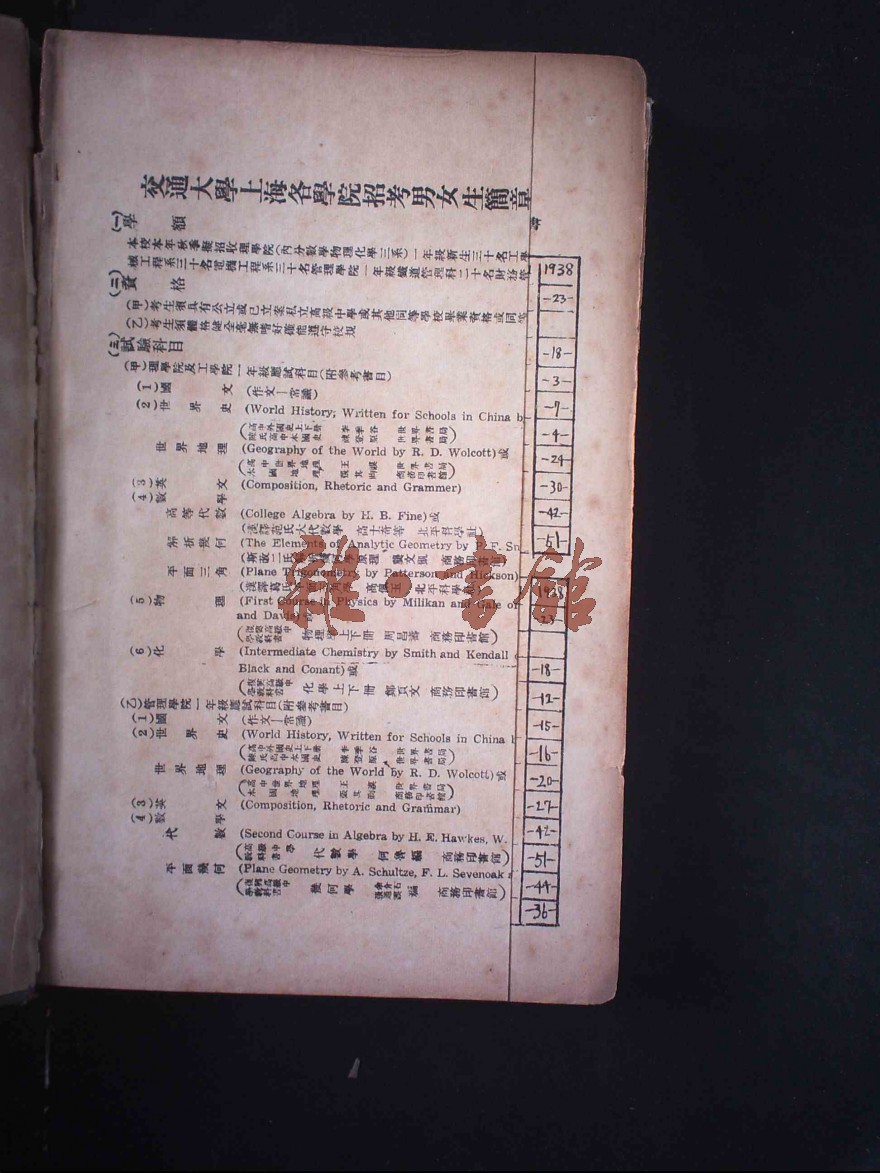 交通大學上海各學院招考男女生簡章
(一)學額
本校本年秋季擬招收理學院(內分數學物理化學三系)一年級新生三十名工學
械工程系三十名電機工程系三十名管理學院一年級鐵道管理科二十名財務管
(二)資格
(甲)考生須具有公立或已立案私立高級中學或其他同等學校畢業資格或同等
(乙)考生須體格健全毫無嗜好確能遵守校規
(三)試驗科目
(甲)理學院及工學院一年級應試科目(附參考書目)
(1)國文 (作文—常識)
(2)世界史 (World History; Written for Schools in China b
世界地理 (Geography of the World by R. D. Wolcott)或
(3)英文 (Composition, Rhetoric and Grammer)
(4)數學
高等代數 (College Algebra by H. B. Fine)或
(漢譯范氏大代數學 高士奇等 北平科學社)
解析幾何 (The Elements of Analytic Geometry by P. F. Sm
平面三角 (Plane Trigonometry by Patterson and Hickson)
(5)物理 (First Course in Physics by Milikan and Gale or
and Davis)
物理學上下冊 周昌壽 商務印書館)
(6)化學 (Intermediate Chemistry by Smith and Kendall
Black and Conant)或
化學上下冊 鄭貞文 商務印書館)
(乙)管理學院一年級應試科目(附參考書目)
(1)國文 (作文—常識)
(2)世界史 (World History, Written for Schools in China b
世界地理 (Geography of the World by R. D. Wolcott)或
(3)英文 (Composition, Rhetoric and Grammar)
(4)數學
代數 (Second Course in Algebra by H. E. Hawkes, W.
代數學 何魯編 商務印書館)
平面幾何 (Plane Geometry by A. Schultze, F. L. Sevenoak
幾何學 編 商務印書館)
1938
-23-
-18-
-3-
-7-
-4-
-24-
-30-
-42-
-51-
1938
-23-
-18-
-12-
-15-
-16-
-20-
-27-
-42-
-51-
-44-
-36-
雜·書館